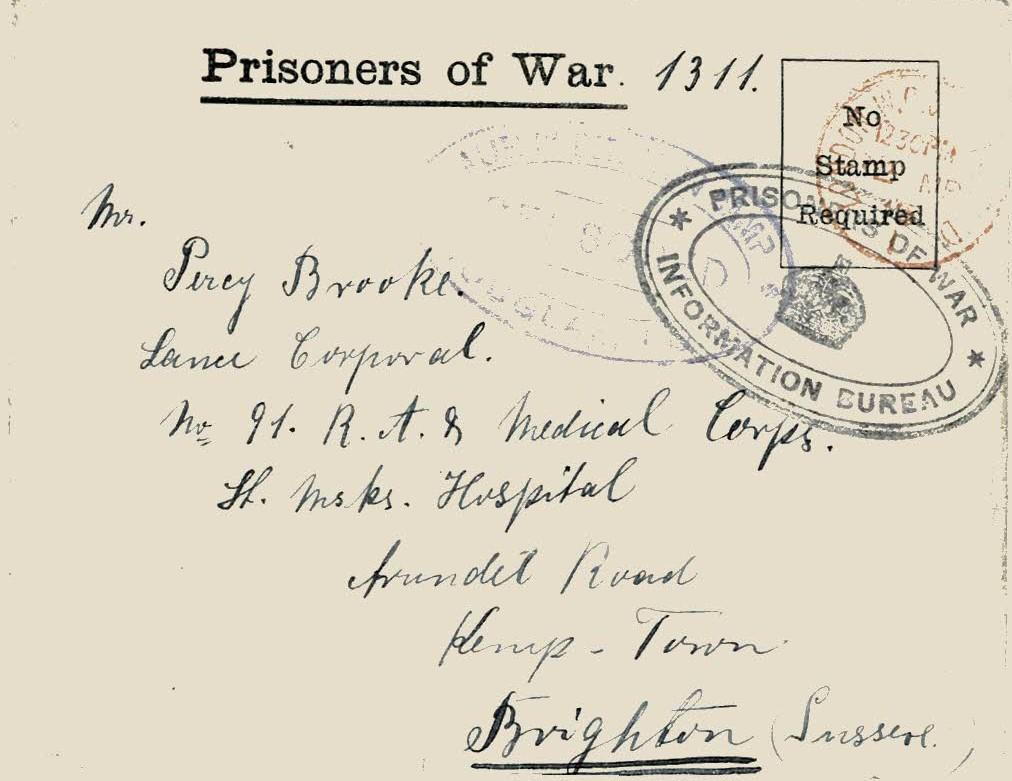 Prisoners of War. 1311.
No
Stamp
Required
PRISONERS OF WAR
INFORMATION BUREAU
Mr.
Percy Brooke.
Lance Corporal.
No 91. R. A. & Medical Corps.
St. Msks. Hospital
Arundel Road
Kemp - Town
Brighton (Sussex.)